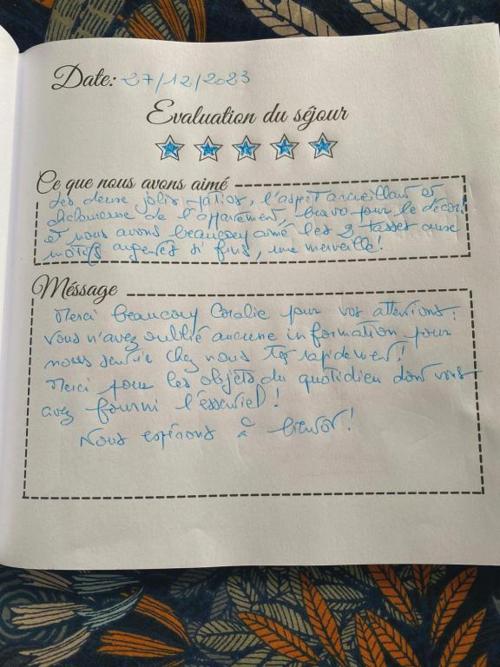 Date: 27/12/2023
Evaluation du séjour
Ce que nous avons aimé
Les deux jolis patios, l'aspect accueillant et
chaleureux de l'appartement, bravo pour le décor!
et nous avons beaucoup aimé les 2 tasses aux
motifs argentés si fins, une merveille!
Méssage
Merci beaucoup Coralie pour vos attentions:
vous n'avez oublié aucune information pour
nous sentir chez nous très rapidement!
Merci pour les objets du quotidien dont vous
avez fourni l'essentiel!
Nous espérons à bientôt!